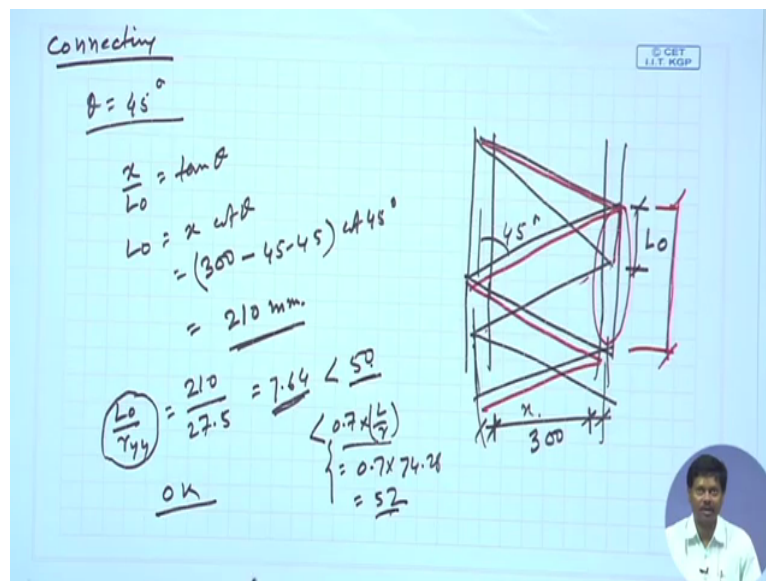 Connecting
© CET
I.I.T. KGP
θ = 45°
x/L0 = tan θ
L0 = x cot θ
= (300 - 45 - 45) cot 45°
= 210 mm.
L0/ryy = 210/27.5 = 7.64 < 50
< 0.7 × (L/r)
= 0.7 × 74.28
= 52
OK
45°
L0
x.
300